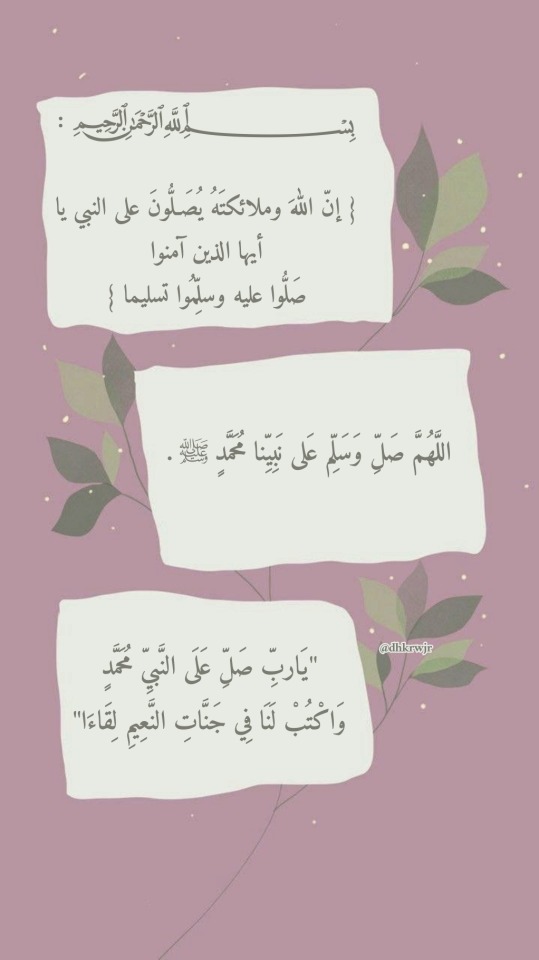 بِسْمِ ٱللَّهِ ٱلرَّحْمَٰنِ ٱلرَّحِيمِ :
{ إنّ اللهَ وملائكتَهُ يُصَلُّونَ على النبي يا
أيها الذين آمنوا
صَلُّوا عليه وسلِّمُوا تسليما }
اللَّهُمَّ صَلِّ وَسَلِّم عَلى نَبِيِّنا مُحَمَّدٍ ﷺ .
@dhkrwjr
"يَاربِّ صَلِّ عَلَى النَّبيِّ مُحَمَّدٍ
وَاكْتُبْ لَنَا فِي جَنَّاتِ النَّعِيمِ لِقَاءَا"